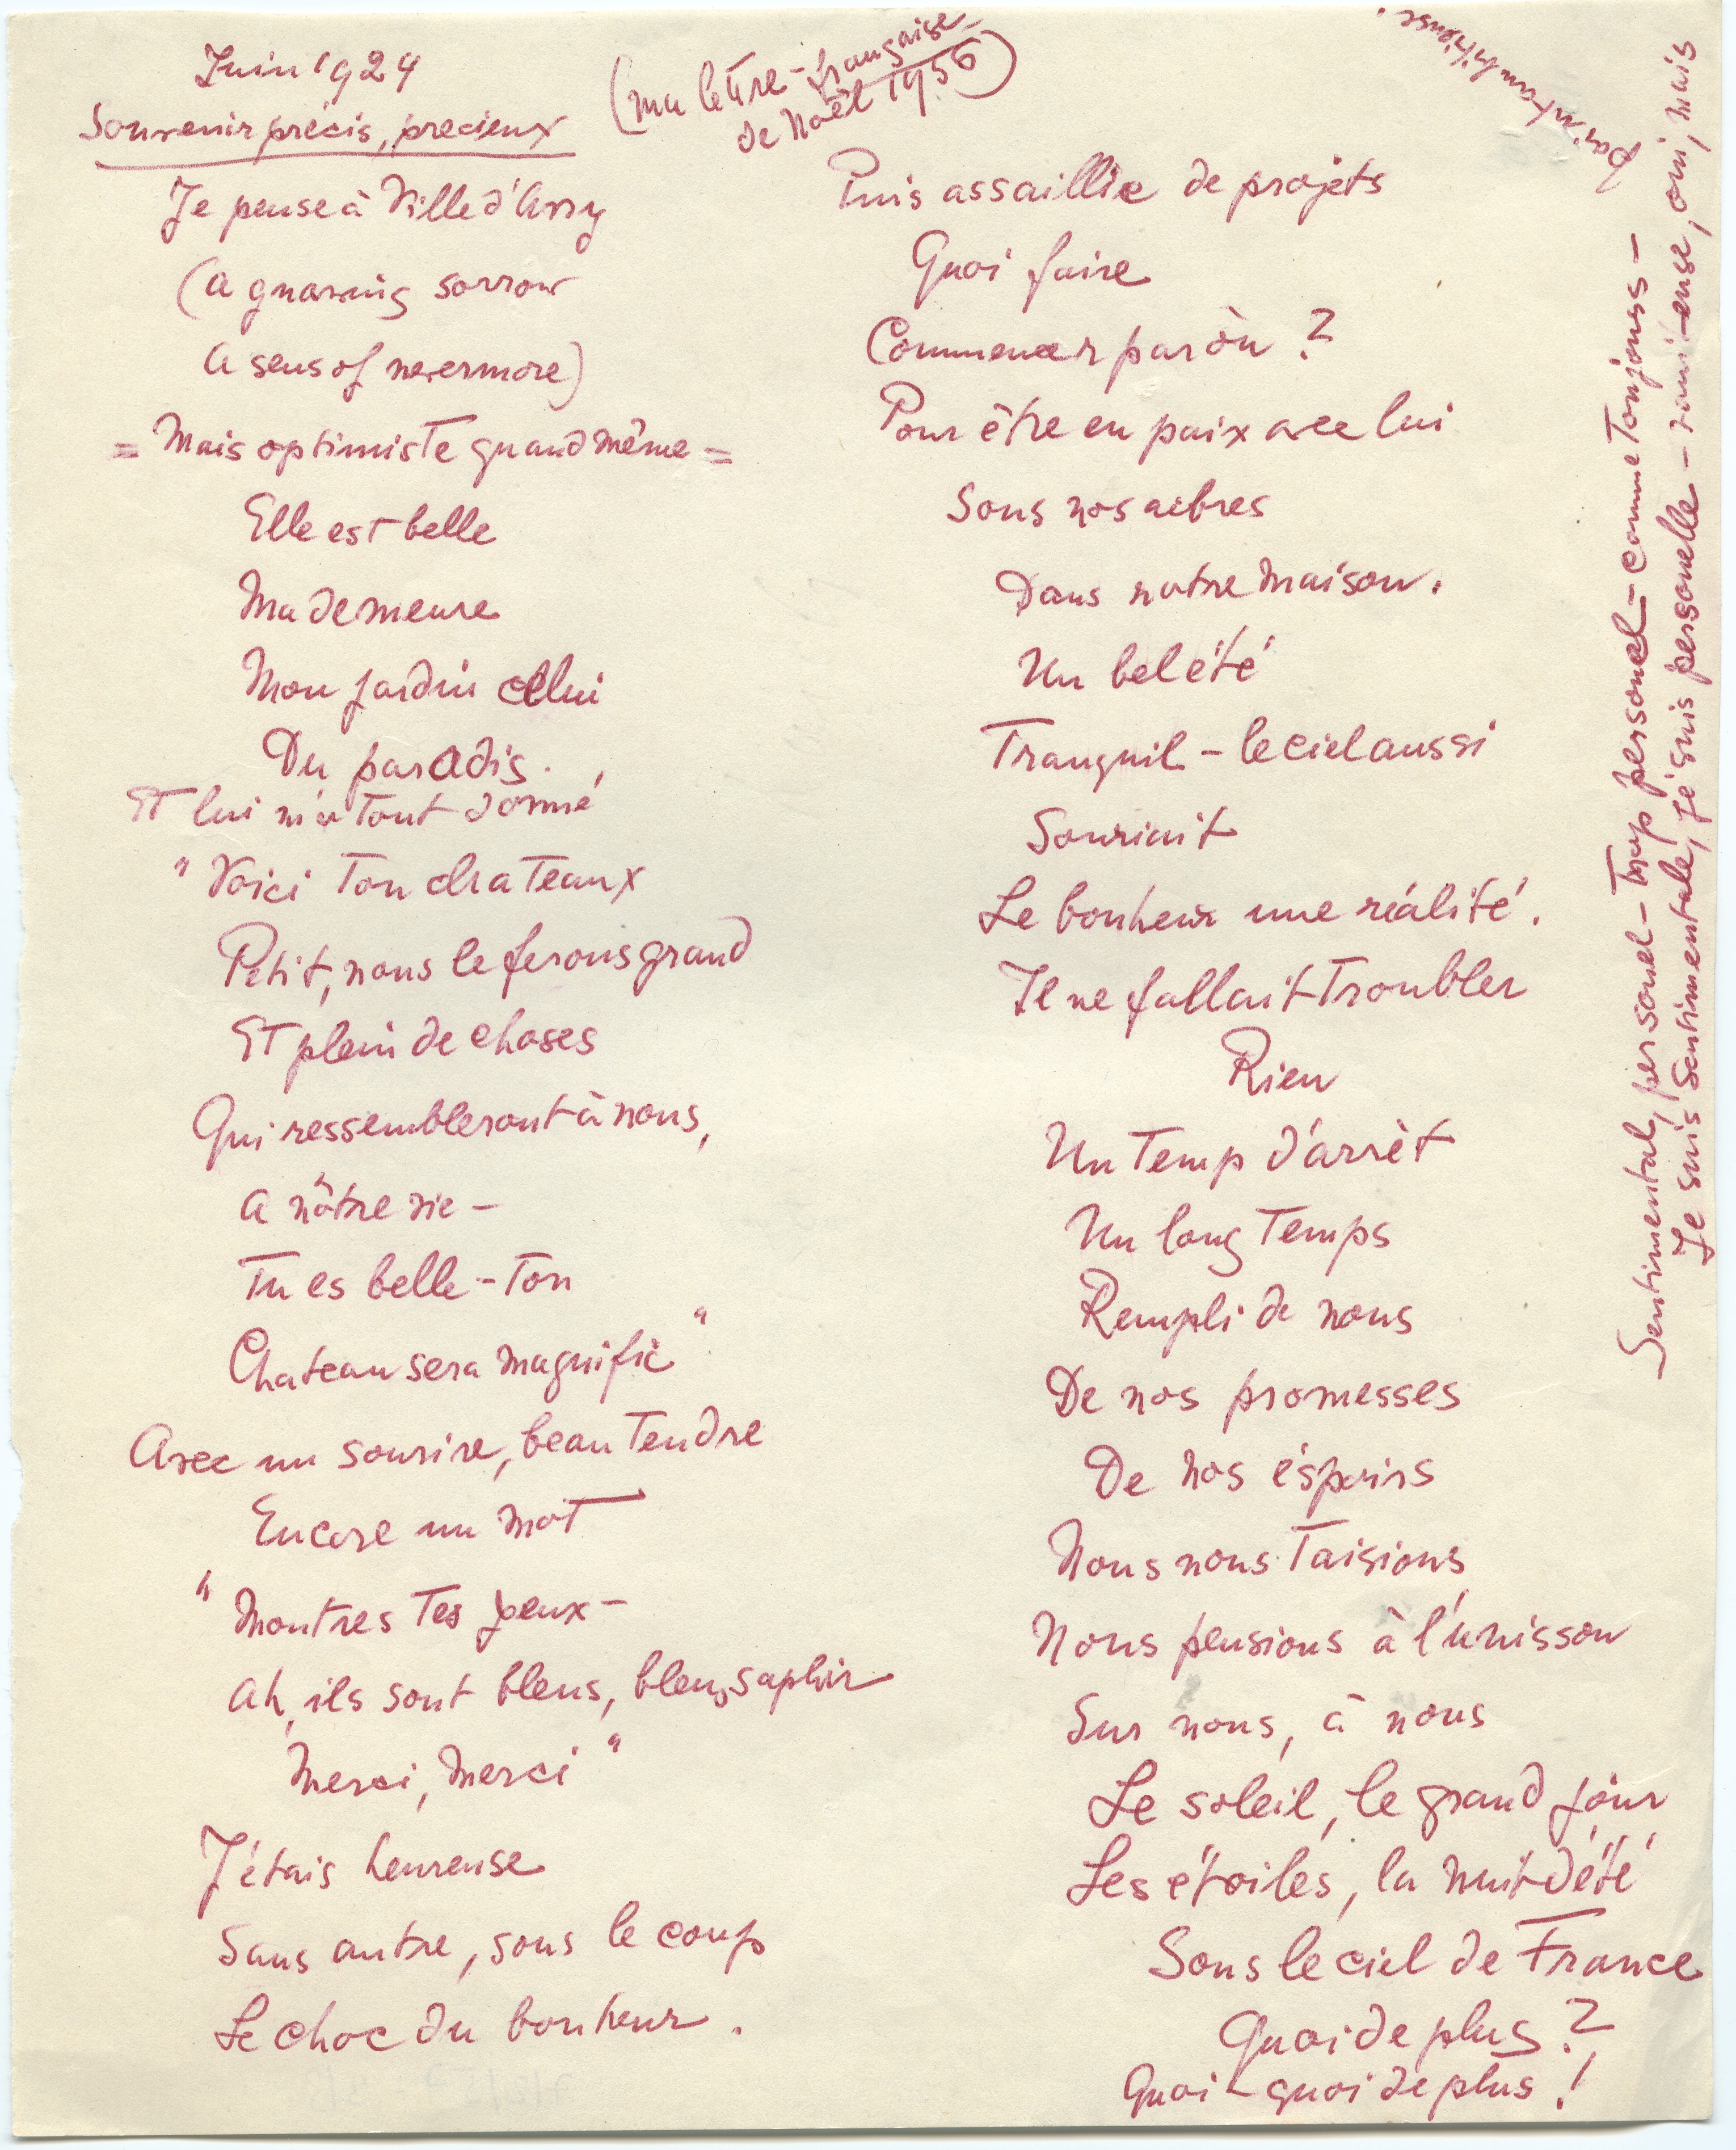 Juin 1924
Souvenir précis, precieux
(ma lettre-française
de Noël 1956)
Je pense à Ville d'Avray
(a gnawing sorrow
a sens of nevermore)
= Mais optimiste quand même =
Elle est belle
Ma demeure
Mon jardin celui
Du paradis.
Et lui m'a tout donné
"Voici ton chateaux
Petit, nous le ferons grand
Et plein de choses
Qui ressembleront à nous,
a nôtre vie -
Tu es belle - ton
Chateau sera magnific"
Avec un sourire, beau tendre
Encore un mot
"Montres tes yeux -
Ah, ils sont bleus, bleu, saphir
Merci, Merci"
J'étais heureuse
Sans autre, sous le coup
Le choc du bonheur.
Puis assaillie de projets
Quoi faire
Commencer par où ?
Pour être en paix avec lui
Sous nos arbres
Dans notre maison.
Un bel été
Tranquil - le ciel aussi
Souriait
Le bonheur une réalité.
Il ne fallait troubler
Rien
Un temp d'arrêt
Un long temps
Rempli de nous
De nos promesses
De nos éspoirs
Nous nous taisions
Nous pensions à l'unisson
Sur nous, à nous
Le soleil, le grand jour,
Les étoiles, la nuit d'été
Sous le ciel de France
Quoi de plus ?
Quoi - quoi de plus !
Sentimental, personel - trop personel - comme toujours -
Je suis sentimentale, je suis personelle - oui, mais
pas ambitieuse.